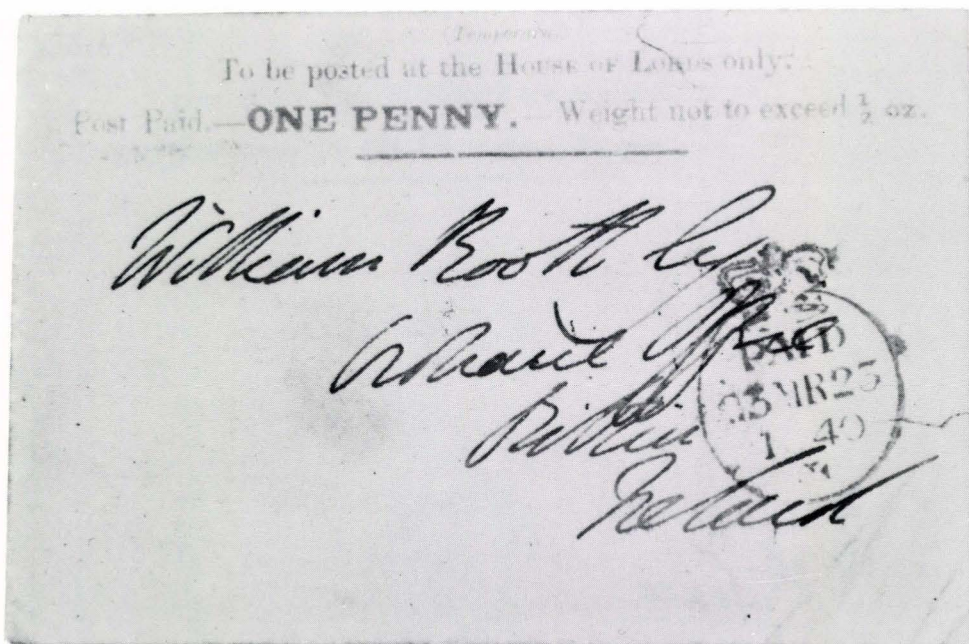 (Temporary.)
To be posted at the HOUSE OF LORDS only.
Post Paid.—ONE PENNY.—Weight not to exceed ½ oz.
William Booth Esq
Ordnance Office
Dublin
Ireland
PAID
MR 23
1840